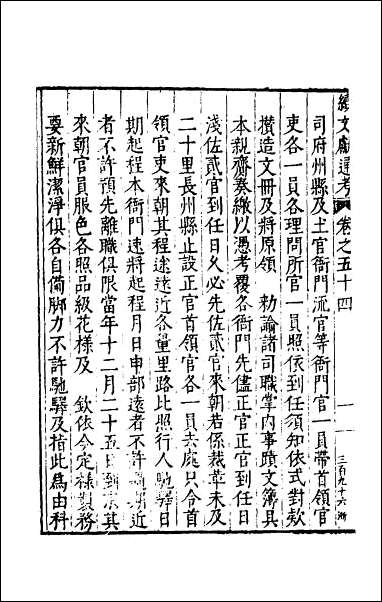 續文獻通考 卷之五十四
三百九十六
司府州縣及土官衙門流官等衙門官一員帶首領官
吏各一員各理問所官一員照依到任須知依式對款
攢造文冊及將原領 勅諭諸司職掌內事蹟文簿具
本親齎奏繳以憑考覆各衙門先儘正官正官到任日
淺佐貳官到任日久必先佐貳官來朝若係裁革未及
二十里長州縣止設正官首領官各一員去處只令首
領官吏來朝其程途遠近各量里路比照行人馳驛日
期起程本衙門速將起程月日申部遠者不許 近
者不許預先離職俱限當年十二月二十五日到 其
來朝官員服色各照品級花樣及 欽依今定 製務
要新鮮潔淨俱各自備脚力不許馳驛及指此爲由科